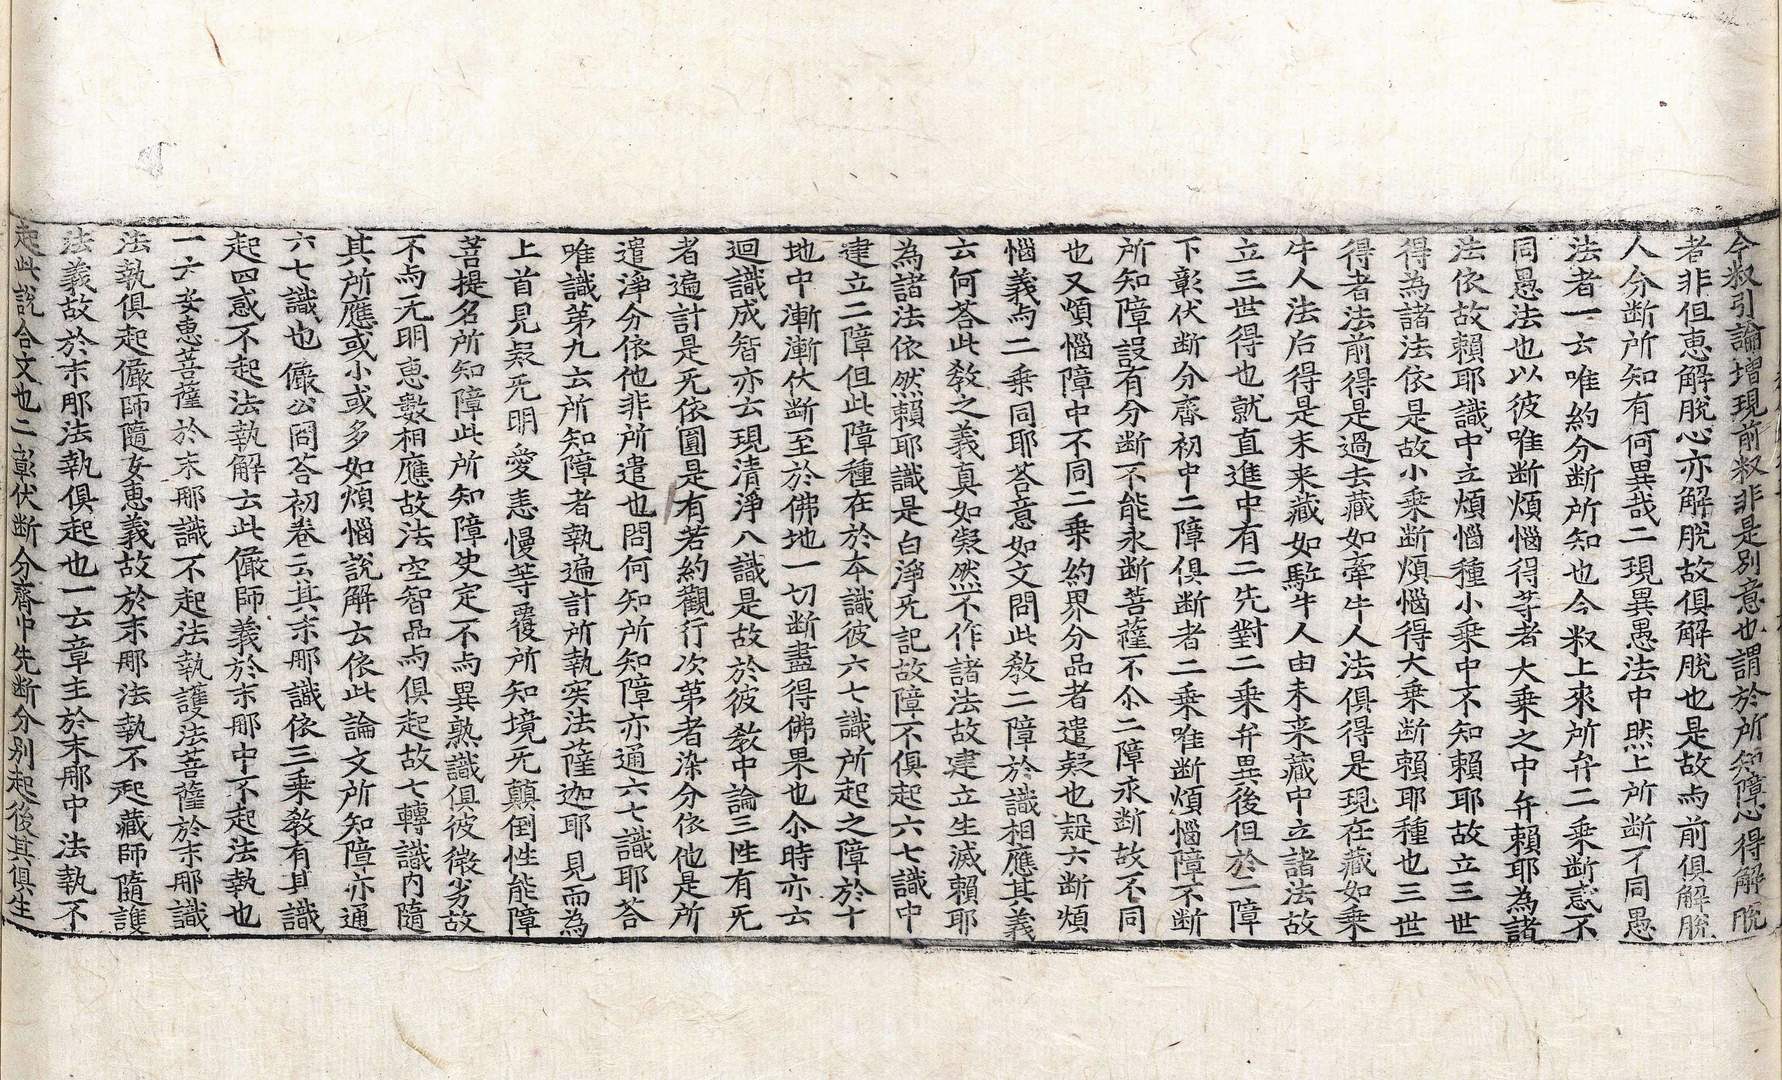 今叙引論增現前叙非是別意也謂於所知障心得解脫
者非但惠解脫心亦解脫故俱解脫也是故与前俱解脫
人分断所知有何異㢤二現異愚法中既上所断不同愚
法者一云唯約分断所知也今叙上來所弁二乗断惑不
同愚法也以彼唯断煩惱得等者大乗之中弁賴耶為諸
法依故賴耶識中立煩惱種小乗中不知賴耶故立三世
得為諸法依是故小乗断煩惱得大乗断賴耶種也三世
得者法前得是過去藏如牽牛人法俱得是現在藏如乗
牛人法后得是未来藏如駈牛人由未来藏中立諸法故
立三世得也就直進中有二先對二乗弁異後但於二障
下彰伏断分齊初中二障俱断者二乗唯断煩惱障不断
所知障設有分断不能永断菩薩不尒二障永断故不同
也又煩惱障中不同二乗約界分品者遣疑也疑六断煩
惱義与二乗同耶荅意如文問此教二障於識相應其義
云何荅此教之義真如凝然不作諸法故建立生滅賴耶
為諸法依然賴耶識是白淨无記故障不俱起六七識中
建立二障但此障種在於本識彼六七識所起之障於十
地中漸漸伏断至於佛地一切断盡得佛果也尒時亦云
迴識成智亦云現清淨八識是故於彼教中論三性有无
者遍計是无依圓是有若約觀行次第者染分依他是所
遣淨分依他非所遣也問何知所知障亦通六七識耶荅
唯識第九云所知障者執遍計所執实法薩迦耶見而為
上首見疑无明愛恚慢等覆所知境无顛倒性能障
菩提名所知障此所知障决定不与異熟識俱彼微劣故
不与无明惠數相應故法空智品与俱起故七轉識内隨
其所應或小或多如煩惱說解云依此論文所知障亦通
六七識也儼公問荅初卷云其末那識依三乗教有其識
起四惑不起法執解云此儼師義於末那中不起法執也
一云安惠菩薩於末那識不起法執護法菩薩於末那識
法執俱起儼師隨安惠義故於末那法執不起藏師隨護
法義故於末那法執俱起也一云章主於末那中法執不
起此說合文也二彰伏断分齊中先断分别起後其俱生